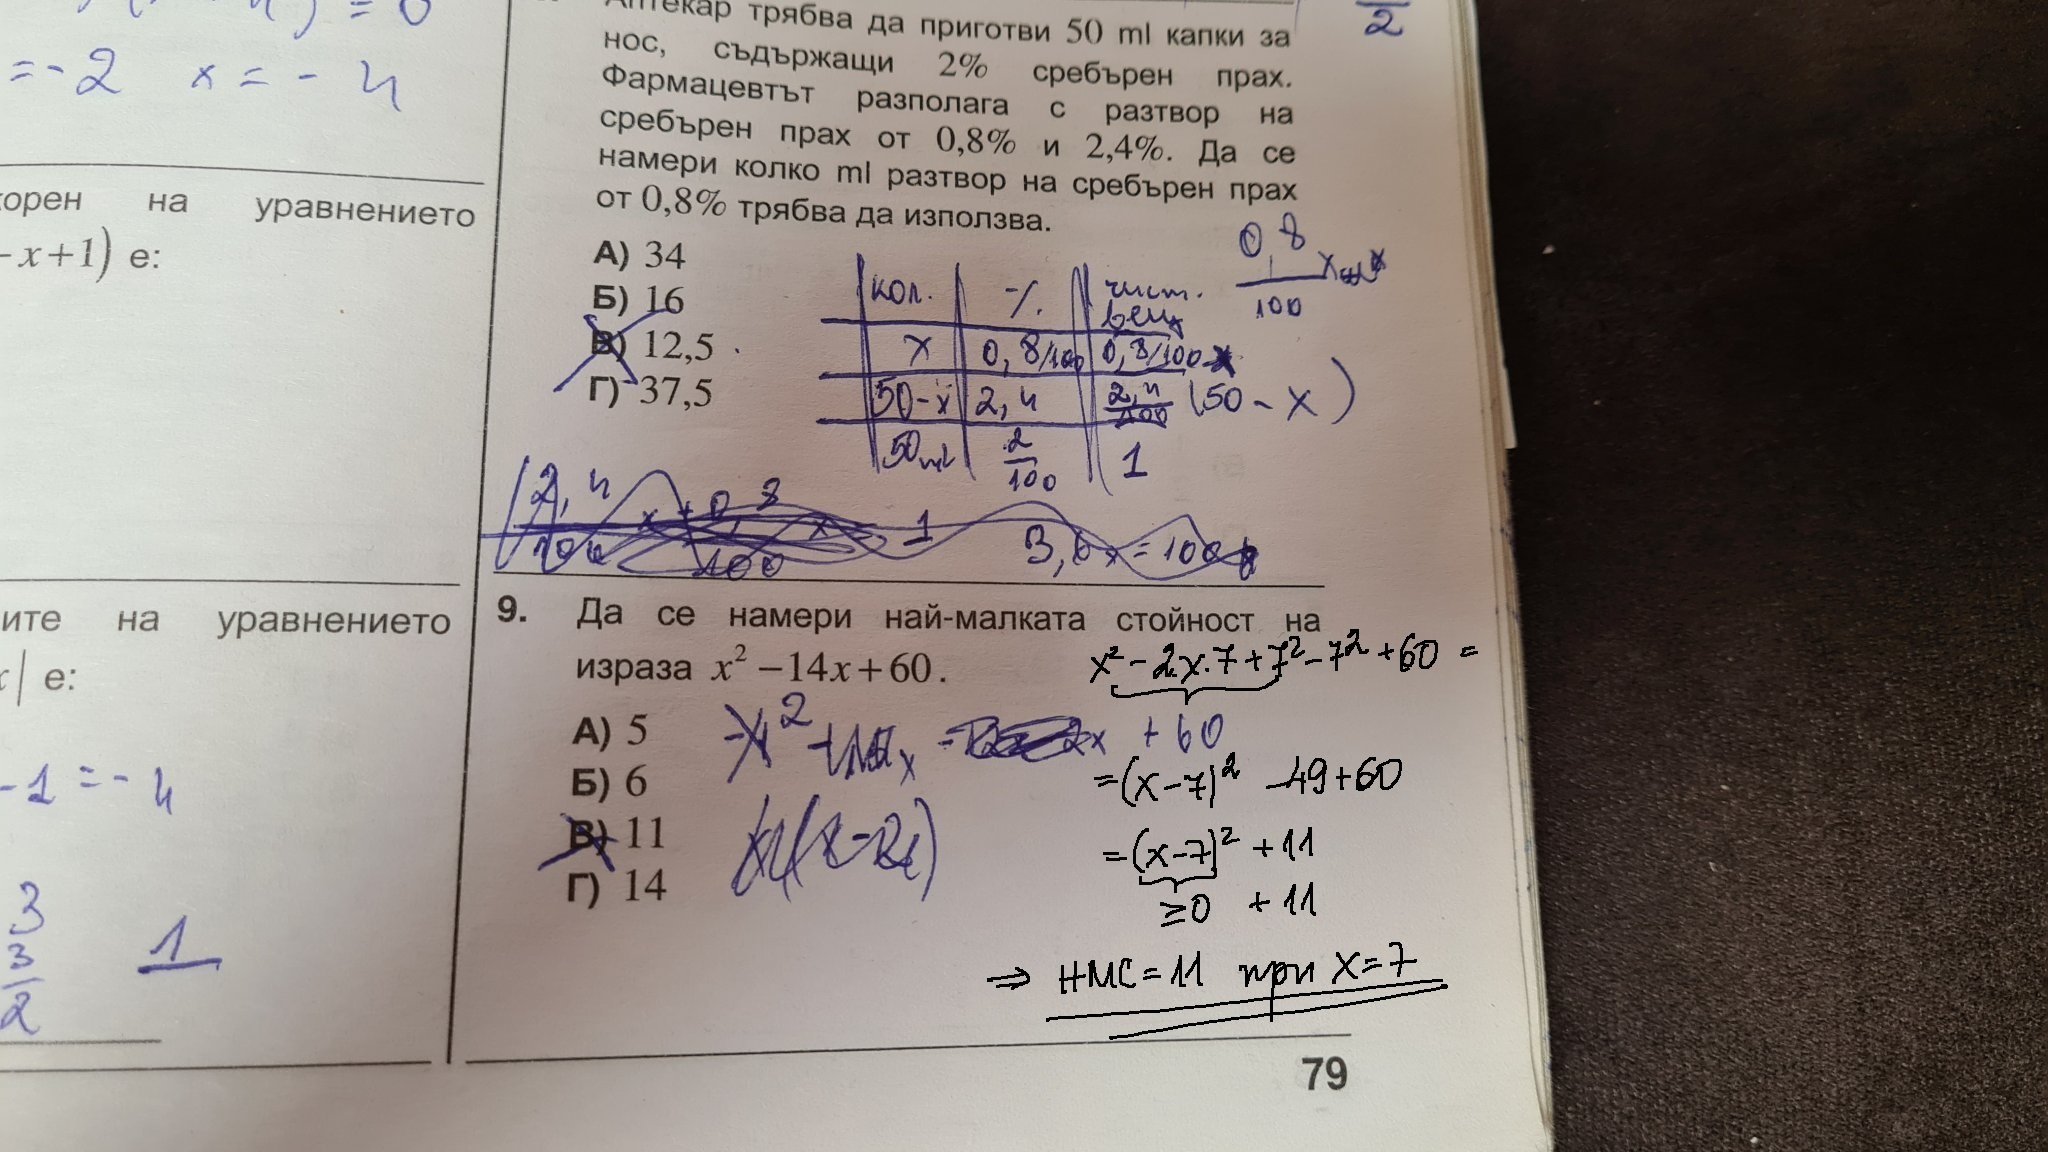 = 0
= -2 x = - 4
корен на уравнението
-x+1) е:
ите на уравнението
x| е:
-1 = - 4
3
3
2
1
2
Аптекар трябва да приготви 50 ml капки за
нос, съдържащи 2% сребърен прах.
Фармацевтът разполага с разтвор на
сребърен прах от 0,8% и 2,4%. Да се
намери колко ml разтвор на сребърен прах
от 0,8% трябва да използва.
А) 34
Б) 16
В) 12,5
Г) 37,5
0,8
100 x
кол. % чист. вещ
x 0,8/100 0,8/100 x
50-x 2,4 2,4/100 (50 - x)
50ml 2/100 1
2,4 x + 0,8 x 1 3,6x = 100
100 100
9. Да се намери най-малката стойност на
израза x² −14x+60.
А) 5
Б) 6
В) 11
Г) 14
+ 60
x² - 2.x.7 + 7² - 7² + 60 =
= (x-7)² - 49 + 60
= (x-7)² + 11
≥0 + 11
⇒ НМС = 11 при x = 7
79